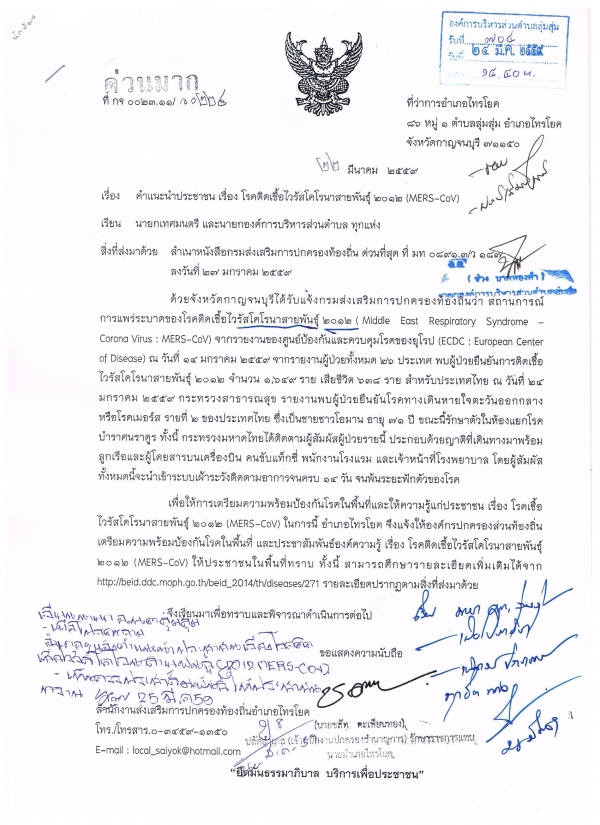 องค์การบริหารส่วนตำบลลุ่มสุ่ม
รับที่ ๗๐๔
วันที่ ๒๔ มี.ค. ๒๕๕๙
เวลา ๑๕.๔๐ น.
ด่วนมาก
ที่ กจ ๐๐๒๓.๑๑/
ที่ว่าการอำเภอไทรโยค
๘๖ หมู่ ๑ ตำบลลุ่มสุ่ม อำเภอไทรโยค
จังหวัดกาญจนบุรี ๗๑๑๕๐
๒๒ มีนาคม ๒๕๕๙
เรื่อง คำแนะนำประชาชน เรื่อง โรคติดเชื้อไวรัสโคโรนาสายพันธุ์ ๒๐๑๒ (MERS-CoV)
เรียน นายกเทศมนตรี และนายกองค์การบริหารส่วนตำบล ทุกแห่ง
สิ่งที่ส่งมาด้วย สำเนาหนังสือกรมส่งเสริมการปกครองท้องถิ่น ด่วนที่สุด ที่ มท ๐๘๙๑.๓/ว
ลงวันที่ ๒๗ มกราคม ๒๕๕๙
ด้วยจังหวัดกาญจนบุรีได้รับแจ้งกรมส่งเสริมการปกครองท้องถิ่นว่า สถานการณ์
การแพร่ระบาดของโรคติดเชื้อไวรัสโคโรนาสายพันธุ์ ๒๐๑๒ ( Middle East Respiratory Syndrome –
Corona Virus : MERS-CoV) จากรายงานของศูนย์ป้องกันและควบคุมโรคของยุโรป (ECDC : European Center
of Disease) ณ วันที่ ๑๔ มกราคม ๒๕๕๙ จากรายงานผู้ป่วยทั้งหมด ๒๖ ประเทศ พบผู้ป่วยยืนยันการติดเชื้อ
ไวรัสโคโรนาสายพันธุ์ ๒๐๑๒ จำนวน ๑,๖๔๙ ราย เสียชีวิต ๖๓๘ ราย สำหรับประเทศไทย ณ วันที่ ๒๔
มกราคม ๒๕๕๙ กระทรวงสาธารณสุข รายงานพบผู้ป่วยยืนยันโรคทางเดินหายใจตะวันออกกลาง
หรือโรคเมอร์ส รายที่ ๒ ของประเทศไทย ซึ่งเป็นชายชาวโอมาน อายุ ๗๑ ปี ขณะนี้รักษาตัวในห้องแยกโรค
บำราศนราดูร ทั้งนี้ กระทรวงมหาดไทยได้ติดตามผู้สัมผัสผู้ป่วยรายนี้ ประกอบด้วยญาติที่เดินทางมาพร้อม
ลูกเรือและผู้โดยสารบนเครื่องบิน คนขับแท็กซี่ พนักงานโรงแรม และเจ้าหน้าที่โรงพยาบาล โดยผู้สัมผัส
ทั้งหมดนี้จะนำเข้าระบบเฝ้าระวังติดตามอาการจนครบ ๑๔ วัน จนพ้นระยะฟักตัวของโรค
เพื่อให้การเตรียมความพร้อมป้องกันโรคในพื้นที่และให้ความรู้แก่ประชาชน เรื่อง โรคเชื้อ
ไวรัสโคโรนาสายพันธุ์ ๒๐๑๒ (MERS-CoV) ในการนี้ อำเภอไทรโยค จึงแจ้งให้องค์กรปกครองส่วนท้องถิ่น
เตรียมความพร้อมป้องกันโรคในพื้นที่ และประชาสัมพันธ์องค์ความรู้ เรื่อง โรคติดเชื้อไวรัสโคโรนาสายพันธุ์
๒๐๑๒ (MERS-CoV) ให้ประชาชนในพื้นที่ทราบ ทั้งนี้ สามารถศึกษารายละเอียดเพิ่มเติมได้จาก
http://beid.ddc.moph.go.th/beid_2014/th/diseases/271 รายละเอียดปรากฏตามสิ่งที่ส่งมาด้วย
จึงเรียนมาเพื่อทราบและพิจารณาดำเนินการต่อไป
ขอแสดงความนับถือ
(2012 MERS-CoV)
25 มี.ค. 59
(นายชลัท ตะเพียนทอง)
ปลัดอำเภอ (เจ้าพนักงานปกครองชำนาญการ) รักษาราชการแทน
นายอำเภอไทรโยค
สำนักงานส่งเสริมการปกครองท้องถิ่นอำเภอไทรโยค
โทร./โทรสาร.๐-๓๔๕๙-๑๓๕๐
E-mail : local_saiyok@hotmail.com
“ยึดมั่นธรรมาภิบาล บริการเพื่อประชาชน”